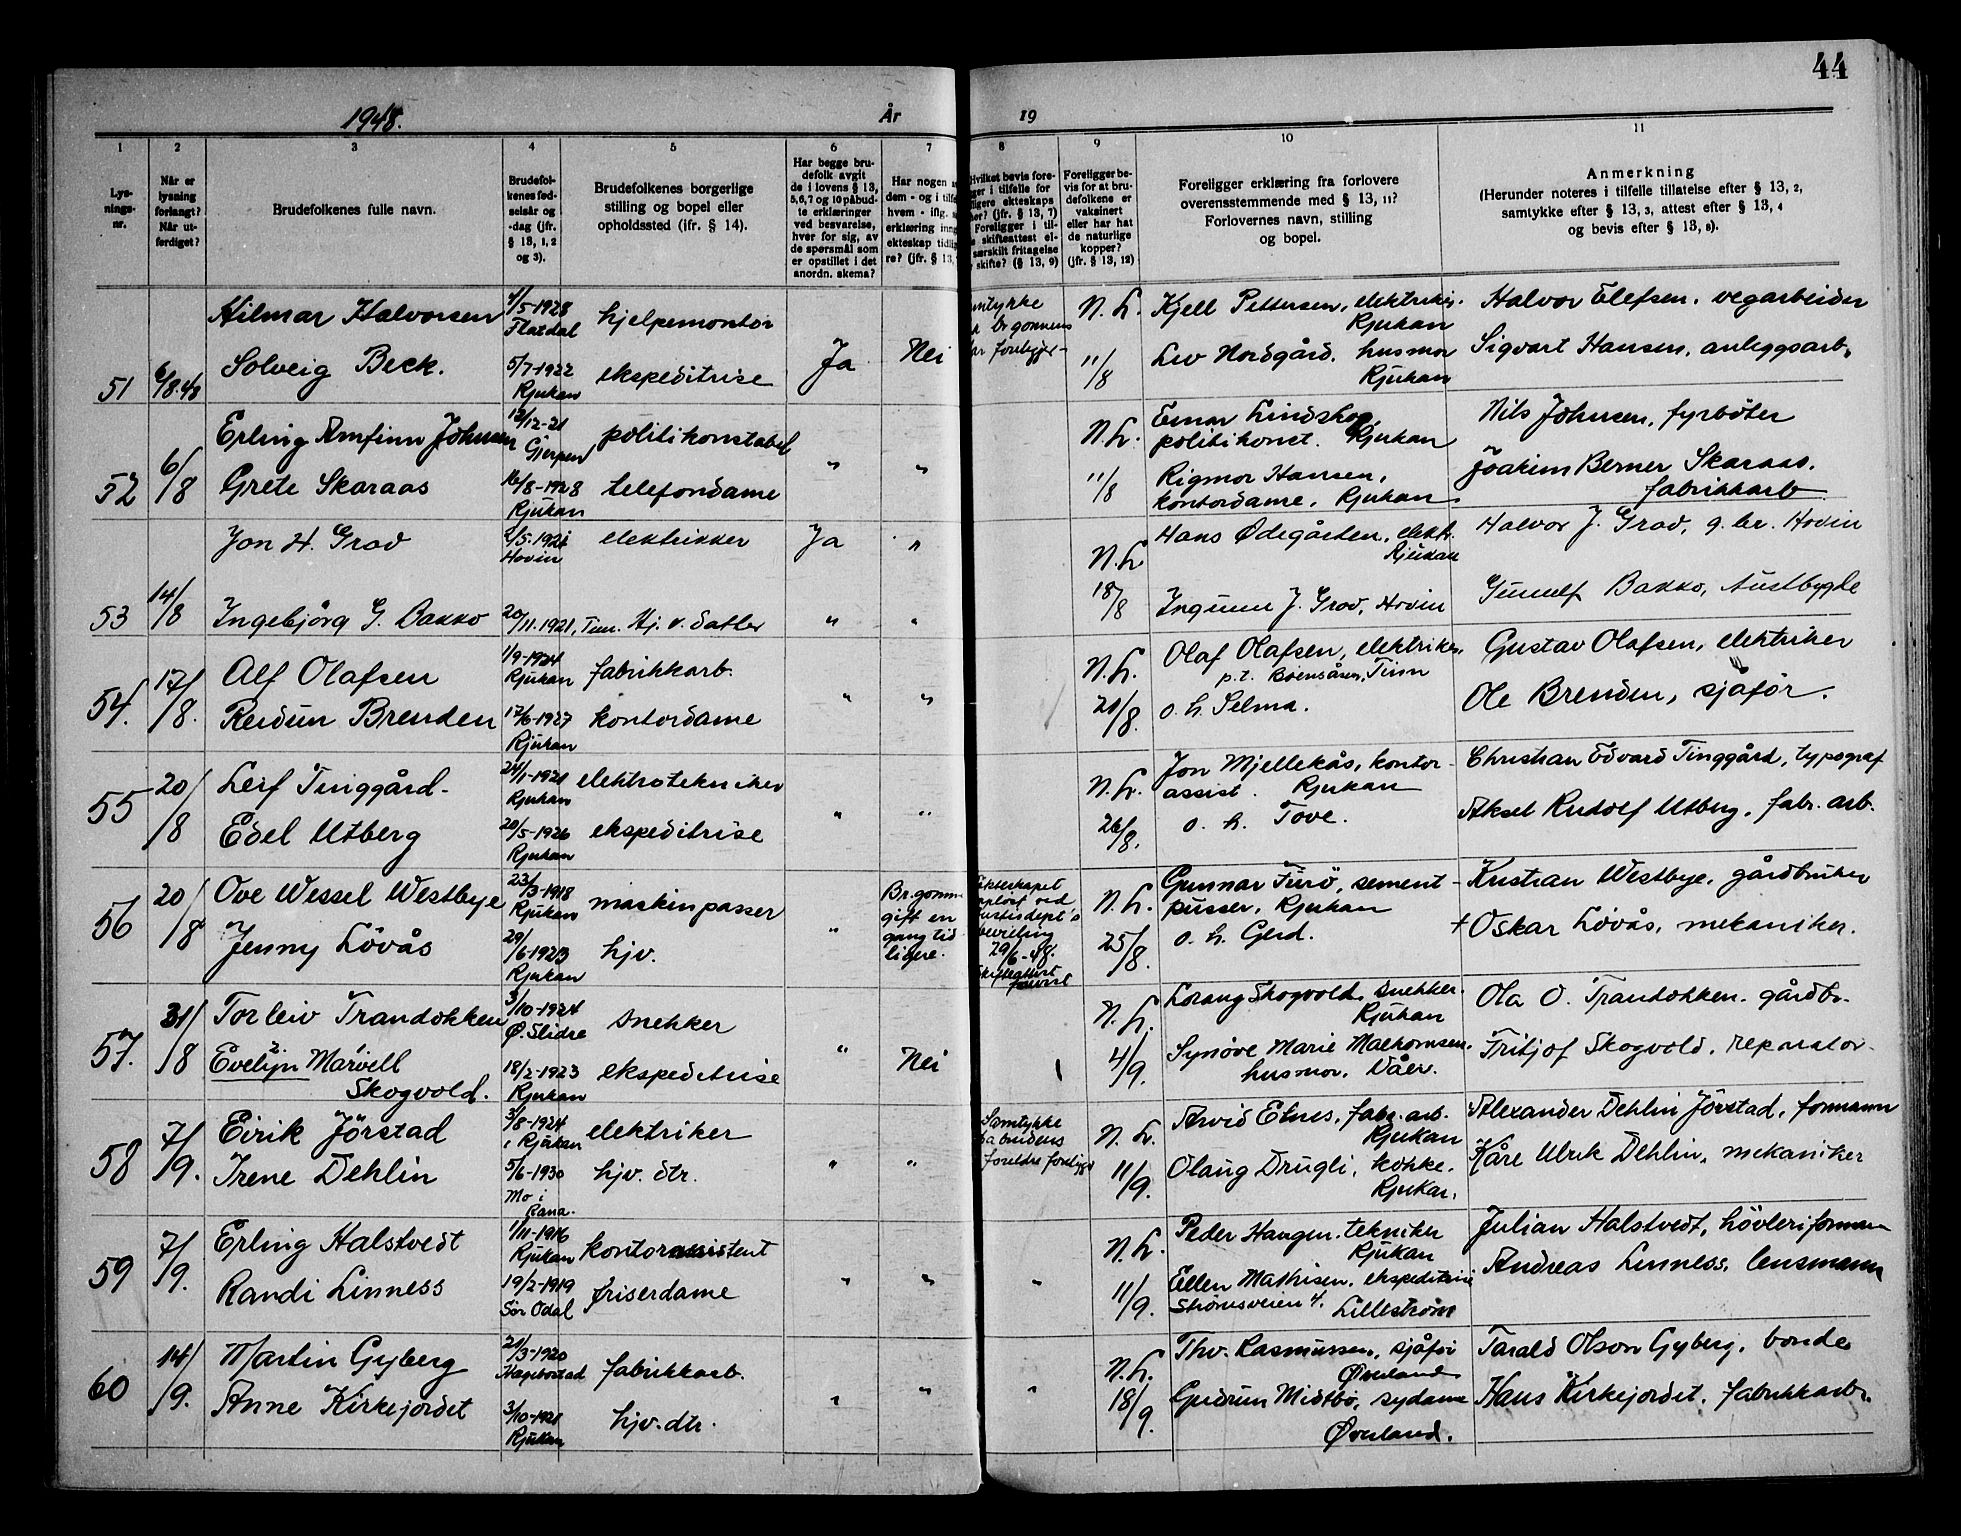 44
1948.
År
19
1 2 3 4 5 6 7 8 9 10 11
Lys-
nings-
nr.
Når er
lysning
forlangt?
Når ut-
ferdiget?
Brudefolkenes fulle navn.
Brudefol-
kenes fød-
selsår og
-dag (jfr.
§ 13, 1, 2
og 3).
Brudefolkenes borgerlige
stilling og bopel eller
opholdssted (ifr. § 14).
Har begge bru-
defolk avgit
de i lovens § 13,
5,6,7 og 10 påbud-
te erklæringer
ved besvarelse,
hver for sig, av
de spørsmål som
er opstillet i det
anordn. skema?
Har nogen
dem - og i tilf
hvem - iflg.
erklæring inng
ekteskap tidlig
re? (jfr. § 13,
Hvilket bevis fore-
ger i tilfelle for
ligere ekteskaps
her? (jfr. § 13, 7)
Foreligger i til-
e skifteattest el-
særskilt fritagelse
skifte? (§ 13, 9)
Foreligger be-
vis for at bru-
defolkene er
vaksinert
eller har hat
de naturlige
kopper?
(jfr. § 13, 12)
Foreligger erklæring fra forlovere
overensstemmende med § 13, 11?
Forlovernes navn, stilling
og bopel.
Anmerkning
(Herunder noteres i tilfelle tillatelse efter § 13, 2,
samtykke efter § 13, 3, attest efter § 13, 4
og bevis efter § 13, 8).
51 6/8.48 Hilmar Halvorsen 1/5-1928 Flatdal hjelpemontør
Solveig Beck. 5/7-1922 Rjukan ekspeditrise Ja Nei
mtykke
br.gommens
foreligger-
N.L. Kjell Pettersen, elektrikj. Rjukan Halvor Elefsen. vegarbeider
11/8 Liv Nordgård. husmor Rjukan Sigvart Hansen, anleggsarb.
52 6/8 Erling Arnfinn Johnsen 12/12-21 Gjerpen politikonstabel " "
Grete Skaraas 16/8-1928 Rjukan telefondame
N.L. Einar Lindskog,
politikonst. Rjukan Nils Johnsen, fyrbøter
11/8 Rigmor Hansen,
kontordame, Rjukan Joakim Berner Skaraas.
fabrikkarb.
53 14/8 Jon H. Grov /5-1921 Hovin elektrikker Ja "
Ingebjörg G. Bakko 20/11.1921, Tinn. Hj. v. datter " "
N.L Hans Ødegården, elektr. Rjukan Halvor J. Grov, g. br. Hovin
18/8 Ingunn J. Grov, Hovin Gunulf Bakko, Austbygde
54. 17/8. Alf Olafsen 1/9-1924 Rjukan fabrikkarb. " "
Reidun Brenden 17/6-1927 Rjukan kontordame
N.L. Olaf Olafsen, elektriker,
p.t. Bøensåsen, Tinn Gustav Olafsen, elektriker
21/8. o. h. Selma. Ole Brenden, sjåfør.
55 20/8 Leif Tinggård- 24/1-1921 Rjukan elektrotekniker " "
Edel Utberg 20/5-1926 Rjukan ekspeditrise
N.L. Jon Mjellekås, kontor-
assist. Rjukan Christian Edvard Tinggård, typograf
26/8. o. h. Tove. Aksel Rudolf Utberg, fabr. arb.
56 20/8 Ove Wessel Westbye 23/3-1918 Rjukan maskinpasser "
Jenny Lövås 29/6-1923 Rjukan hjv.
Br.gomm
gift en
gang tid
ligere.
Ekteskapet
opløst ved
Justisdept's
bevilling
29/6-48.
Skifteattest
forevist
N.L. Gunnar Furö, sement-
pusser, Rjukan Kristian Westbye, gårdbruker
25/8. o. h. Gerd. + Oskar Lövås, mekaniker.
57. 31/8 Torleiv Trandokken 3/10-1924 Ø. Slidre snekker " Nei
Evelyn Marvell
Skogvold. 18/2-1923 Rjukan ekspeditrise
N.L. Lorang Skogvold, snekker. Rjukan Ola O. Trandokken. gårdbr.
4/9. Synöve Marie Malhomsen.
husmor, Dåer. Fritjof Skogvold. reparatør.
58 7/9. Eirik Jörstad 3/8-1924 Rjukan elektriker " "
Irene Dehlin 5/6-1930
Mo i
Rana. hjv. dtr.
Samtykke
fra brudens
foreldre foreligger
N.L. Arvid Elnes, fabr. arb. Rjukan Alexander Dehlin Jörstad, formann
11/9. Olaug Drugli, kokke. Rjukan. Kåre Ulrik Dehlin, mekaniker
59 7/9. Erling Halstvedt 1/11-1916 Rjukan kontorassistent " " "
Randi Linness 19/2-1919 Sør Odal friserdame
N.L. Peder Haugen. tekniker Rjukan Julian Halstvedt, hövleriforman
11/9. Ellen Mathisen, ekspeditrise
Strømsveien 4. Lilleström Andreas Linness, lensmann
60 14/9. Martin Gyberg 21/3-1920 Hægebostad fabrikkarb. " " "
Anne Kirkejordet 3/10-1921 Rjukan hjv. dtr.
N.L. Thv. Rasmussen, sjåför Øverland Tarald Olson Gyberg, bonde
18/9. Gudrun Midtbö, sydame
Øverland. Hans Kirkejordet, fabrikkarb.